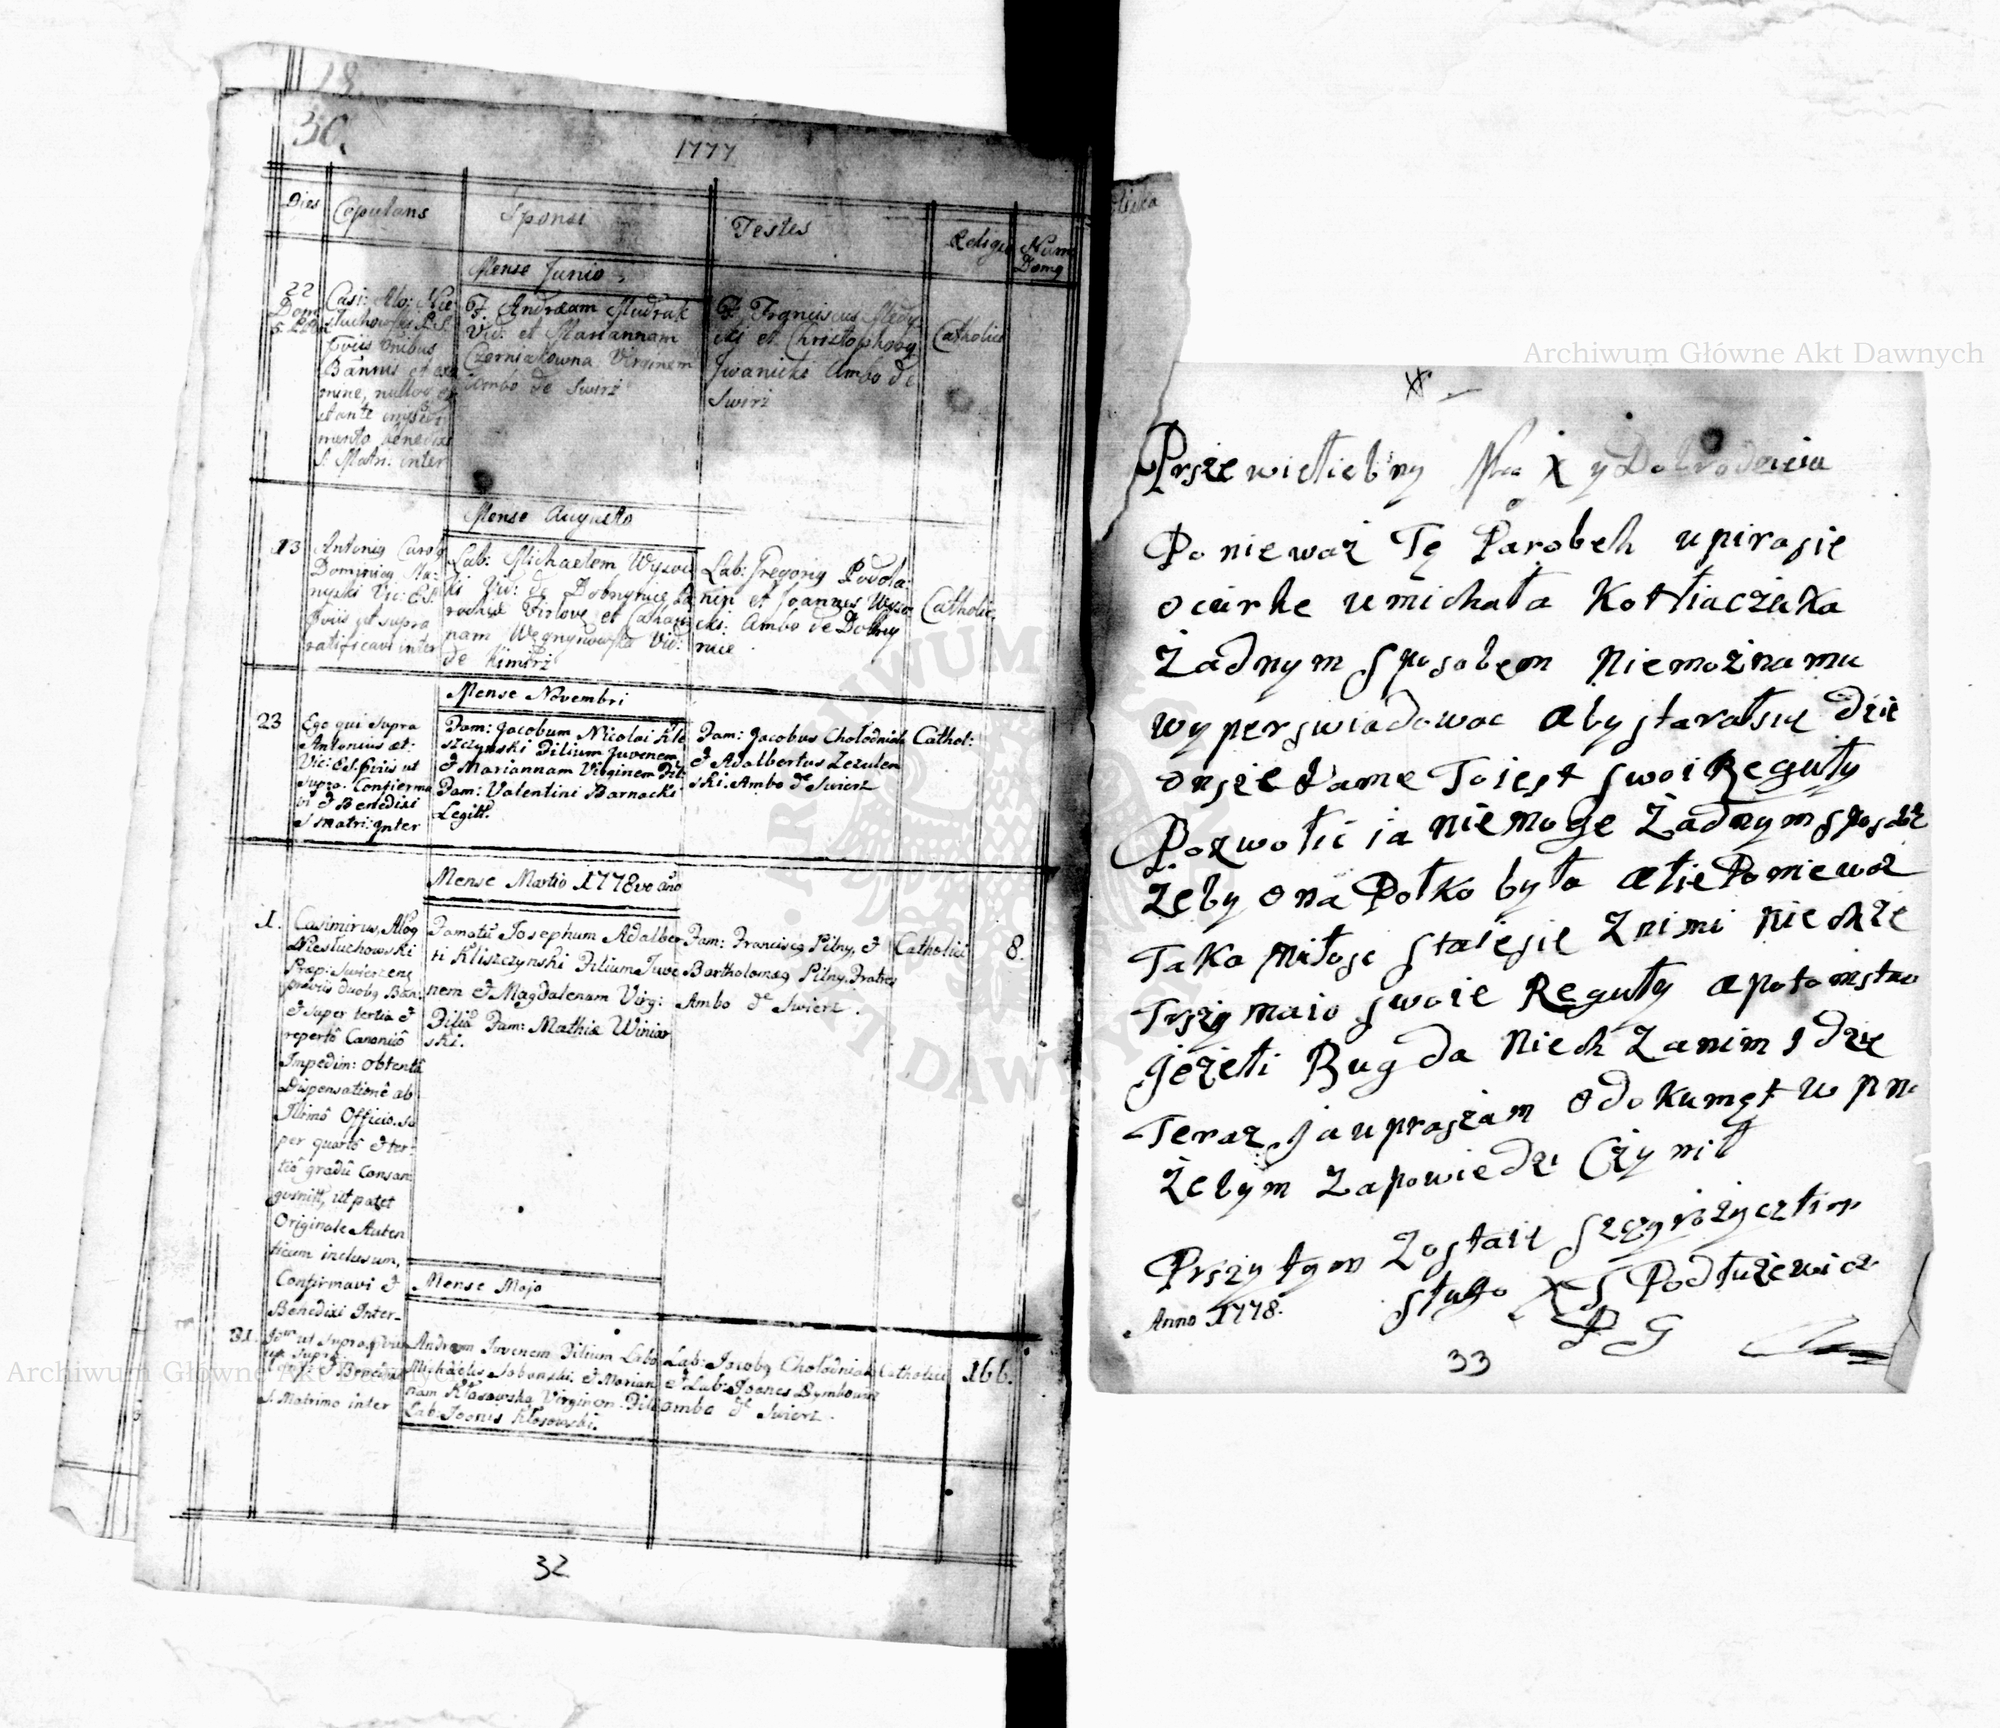 18.
30.
1777
Dies Copulans Sponsi Testes Religio Num Domq
Mense Junio
22 Dom
Casi: Alo: Nie
słuchowski P.S.
Bannis et exa
mine, nullog ex
itante impedi
mento benedixi
S. Matri: inter
F. Andream Mudrak
Vid: et Mariannam
Czerniakowna Virginem
Ambo de Swirz
F. Franciscus Medy
cki et Christophorq
Iwanicki Ambo de
Swirz
Catholici
Mense Augusto
13
Antoniq Carolq
Dominicq
Vic: E.S.
ut supra
ratificavi inter
Lab: Michaelem Wysoc
ki Vid: de Dobrynice
et Cathari
nam Vid:
de Kimirz
Lab: Gregoriq Podola
nin et Joannes Wyso
cki: Ambo de Dobry
nice.
Catholic:
Mense Novembri
23
Ego qui supra
Antonius
Vic: Ecl. ut
supra. Confirma
vi et Benedixi
S Matri: inter
Fam: Jacobum Nicolai Kli
szczynski Filium Juvenem,
et Mariannam Virginem Fil:
Fam: Valentini Barnacki
Legitt.
Fam: Jacobus Chołodniak
et Adalbertus Lezulen
ski. Ambo de Swierz
Cathol:
Mense Martio 1778vo año
1.
Casimirus, Aloq
Niesłuchowski
Præp: Swierzens
præviis duobq Ban:
et super tertia et
repertô Canonicô
Impedim: obtentâ
Dispensationê ab
Illimô Officio. su
per quartô et ter:
tiô gradû Consan
guinitt, ut patet
Originale Auten
ticum inclusum,
Confirmavi et
Benedixi Inter_
Famatû Josephum Adalber
ti Kliszczynski Filium Juve
nem et Magdalenam Virg:
Filiâ Fam: Mathiæ Winiar
ski.
Fam: Franciscq Pilny, et
Bartholomæq Pilny. Fratres
Ambo de Swierz.
Catholici
8.
Mense Majo
31.
ut Supra
et Benedixi
S. Matrimo inter
Andream Juvenem Filium Labo
Michaelis Sobonski et Marian
nam Kłosowska Virginem. Fil:
Lab: Joanis Kłosowski.
Lab: Jacobq Chołodniak
et Lab: Joanes Dymkowicz
ambo de Swierz.
Catholici
166.
32
Przewielebny Mci X y Dobrodzieiu
Poniewaz Tę Parobek upirasie
ocurke u michała Kotłiaczuka
Żadnym sposobem Niemożnamu
wyperswiadowac abystarałsię dzie
onsze Tojest swoi Reguły
Pozwolić ia niemoge Żadnym sposobe
Żeby ona Polko była alie Poniewaz
Tako miłosc staiesie Znimi niechże
Trzymaio swoie Reguły apotomstwo
Jeżeli Bug da Niech Zanim idzie
Teraz Ja upraszam odokument w pn
Żebym Zapowiedzi Czynił
Przytym Zostaie szczyrozyczliwy
sługo X S Podłużewicz
P G
Anno 1778.
33
Archiwum Główne Akt Dawnych
Archiwum Główne Akt Dawnych
ARCHIWUM AKT DAWNYCH